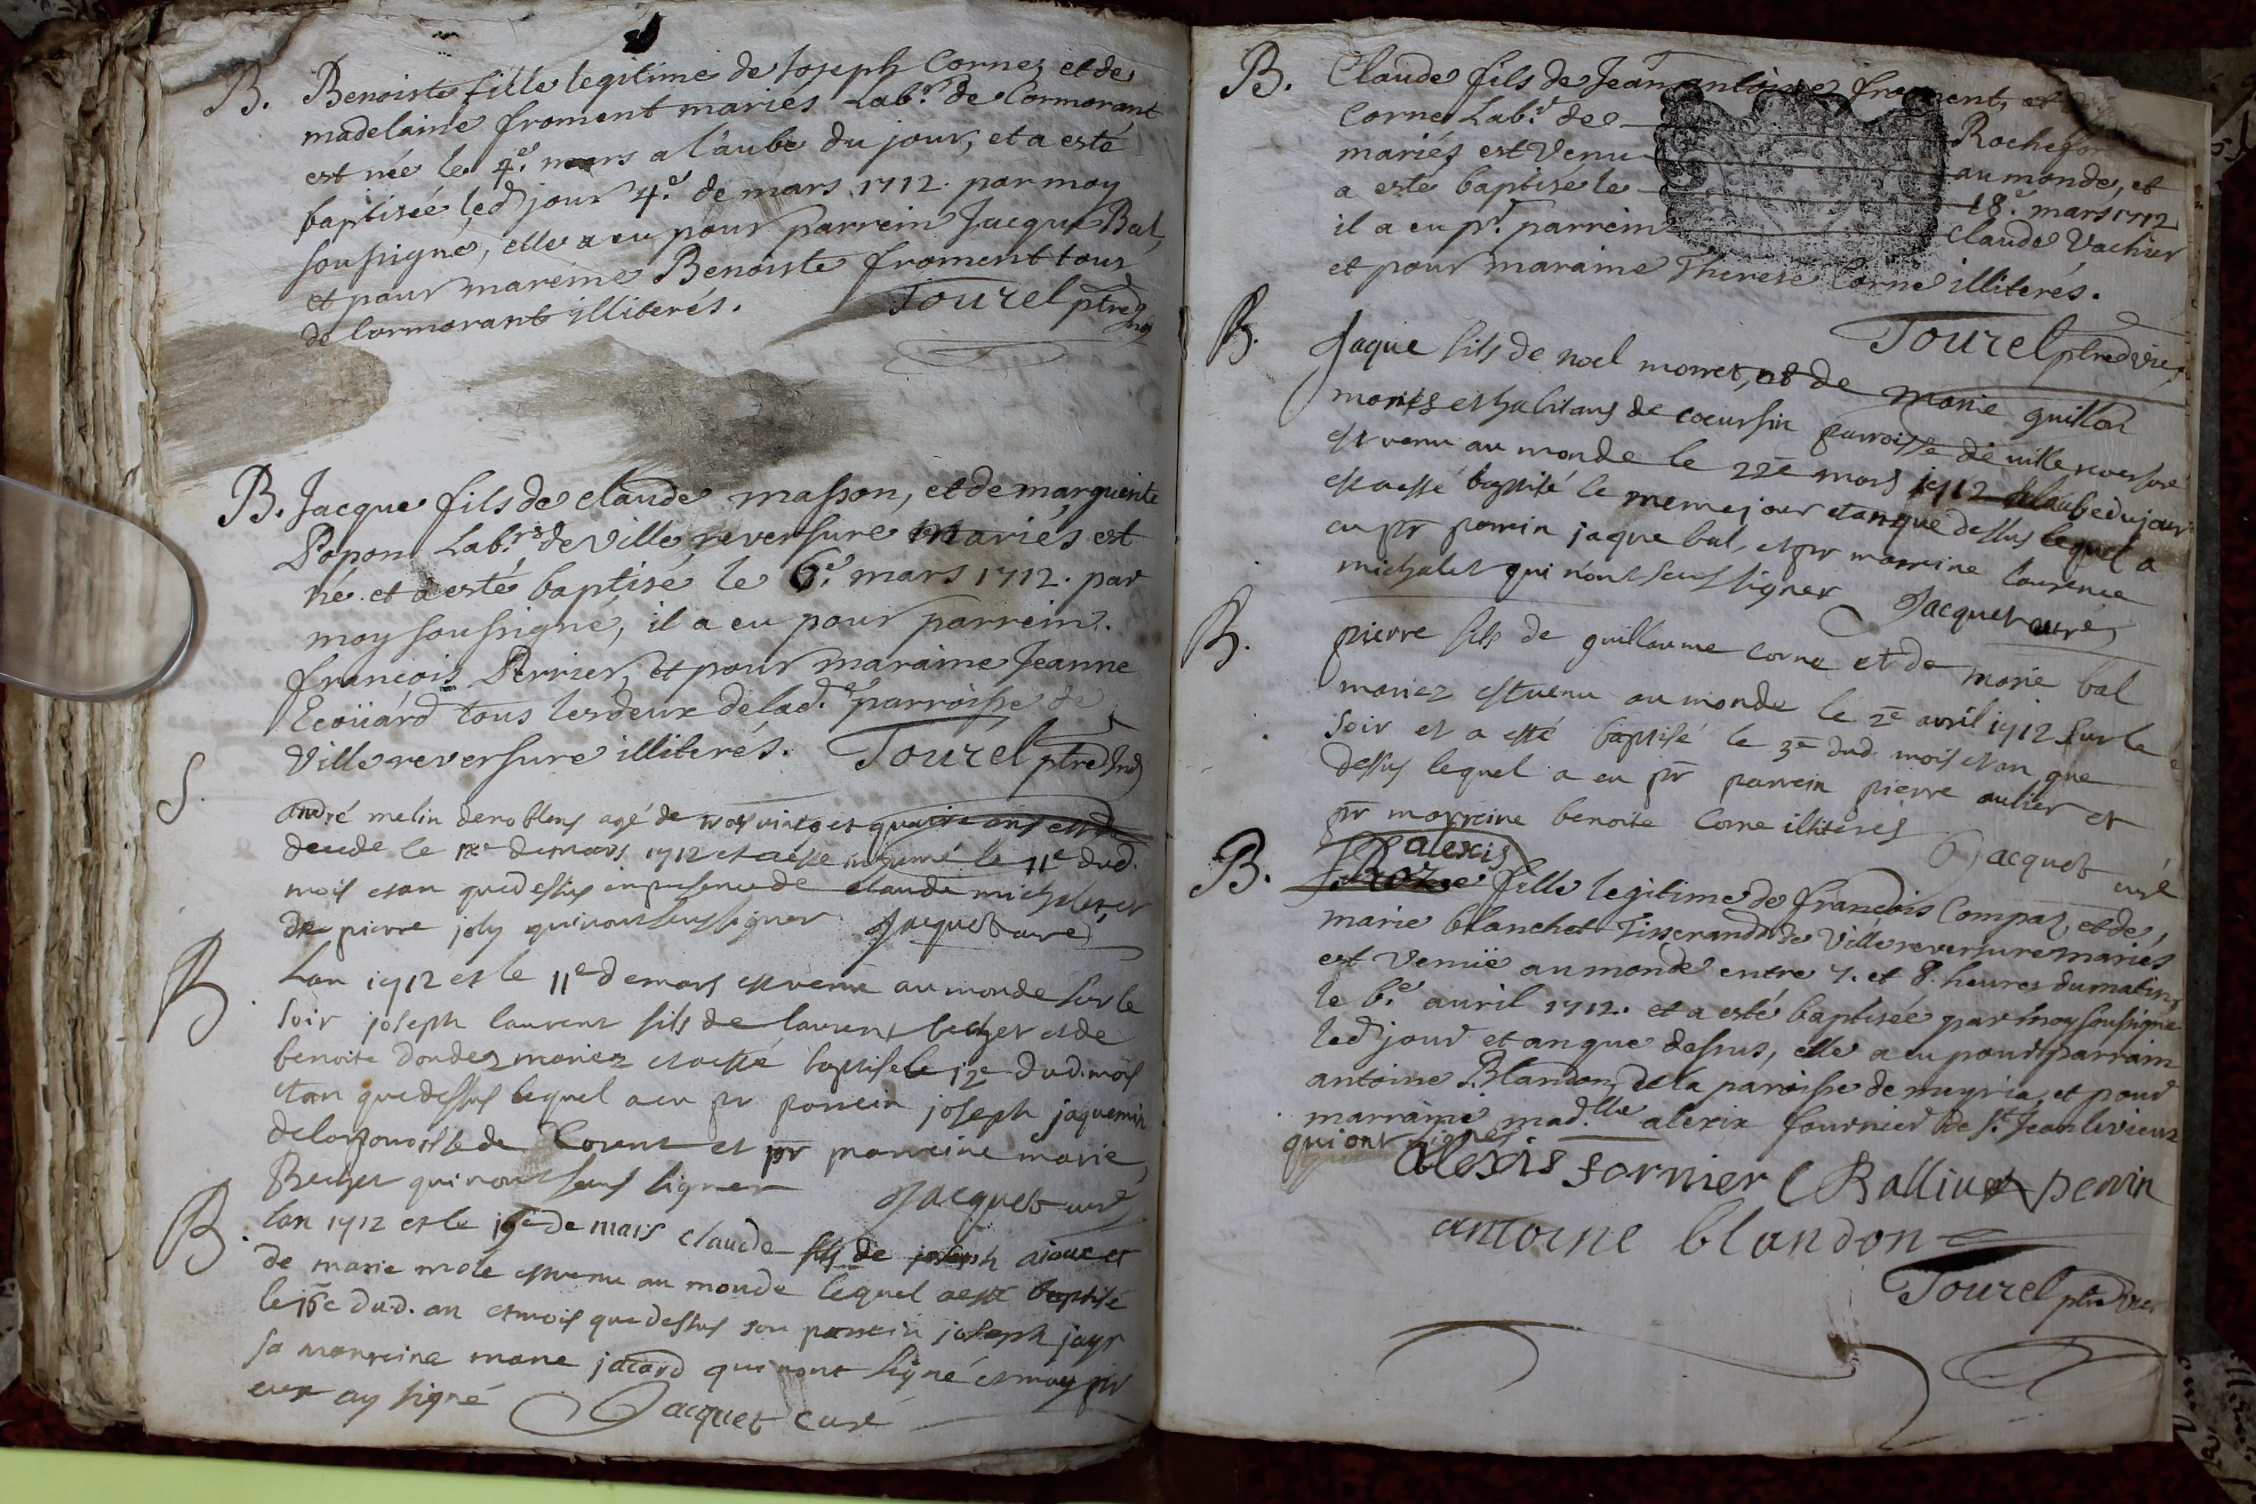 B. Benoiste fille legitime de Joseph Corne, et de
madelaine froment mariés Lab.rs de Cormorant
est née le 4.e mars a l'aube du jour, et a esté
baptisée led jour 4.e de mars 1712. par moy
soussigné, elle a eu pour parrein Jacque Bal,
et pour mareine Benoiste froment tous
de Cormorant illiterés. Tourel ptre
B. Jacque fils de claude masson, et de marguerite
Popon Lab.rs de Ville reversure mariés est
né et a esté baptisé le 6.e mars 1712. par
moy soussigné, il a eu pour parrein
françois Perrier, et pour maraine Jeanne
Ecoüard tous les deux de lad.e parroisse de
Ville reversure illiterés. Tourel ptre
S. André melin de noblens agé de
decede le de mars 1712 et a esté inhumé le 11e dud.
mois et an que dessus en presence de claude michalet et
de pierre joly qui n'ont seus signer Jacquet curé
B Lan 1712 et le 11e de mars est venu au monde sur le
soir joseph laurent fils de laurent et de
benoite dondez mariez et a esté baptisé le 12e dud. mois
et an que dessus lequel a eu pr parrein joseph jaquemin
de la paroisse de Corent et pr marreine marie
qui n'ont seus signer Jacquet curé
B. lan 1712 et le de mars claude fils de joseph et
de marie mole est venu au monde lequel a esté baptisé
le 16e dud. an et mois que dessus son parrein joseph jayr
sa marreine marie jacard qui n'ont signé et moy pr
eux ay signé Jacquet curé
B. Claude fils de Jean antoine froment, et
Corne Lab.r de Rochefor
mariés est Venu au monde, et
a esté baptisé le 18.e mars 1712
il a eu pr. parrein Claude Vachier
et pour maraine Therese Corne illiterés.
Tourel ptre vic
B. Jaque fils de noel morret, et de marie guillon
mariés et habitans de coeursin parroisse de ville reversure
est venu au monde le 22e mars 1712 a l'aube du jour
et a esté baptisé le meme jour et an que dessus lequel a
eu pr parrein jaque bal, et pr marreine laurence
michalet qui n'ont seus signer Jacquet curé
B. pierre fils de guillaume corne et de marie bal
mariez est venu au monde le 2e avril 1712 sur le
soir et a esté baptisé le 3e dud. mois et an que
dessus lequel a eu pr parrein pierre aulier et
pr marreine benoite Corne illiterés Jacquet curé
alexis
B. Roze fille legitime de françois Compaz, et de
marie blanchet Tisserands de Ville reversure mariés
est Venuë au monde entre 7. et 8. heures du matin
le 6.e avril 1712. et a esté baptisée par moy soussigné
led jour et an que dessus, elle a eu pour parrain
antoine Blandon, de la paroisse de meyria, et pour
marraine mad.lle alexix fournier de St Jean le vieux
qui ont signé
alexis fornier Balliuet perrin
antoine blandon
Tourel ptre vic